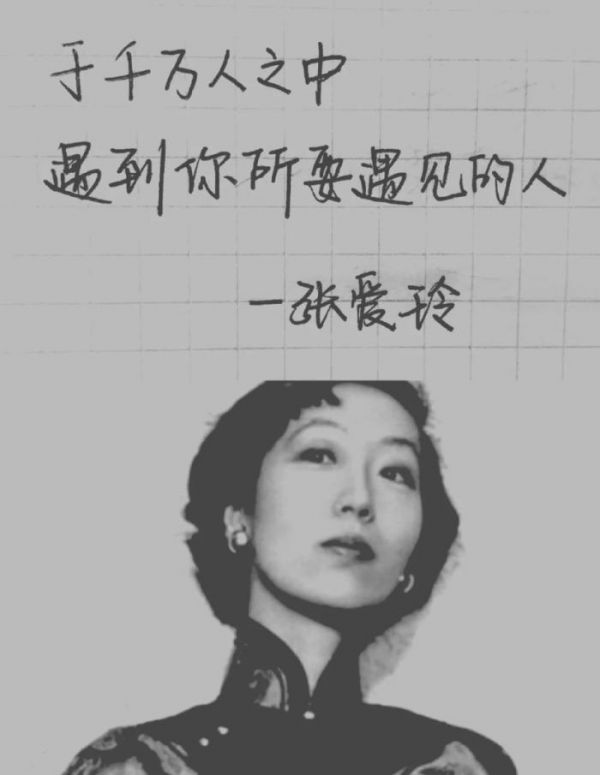 于千万人之中
遇到你所要遇见的人
一张爱玲